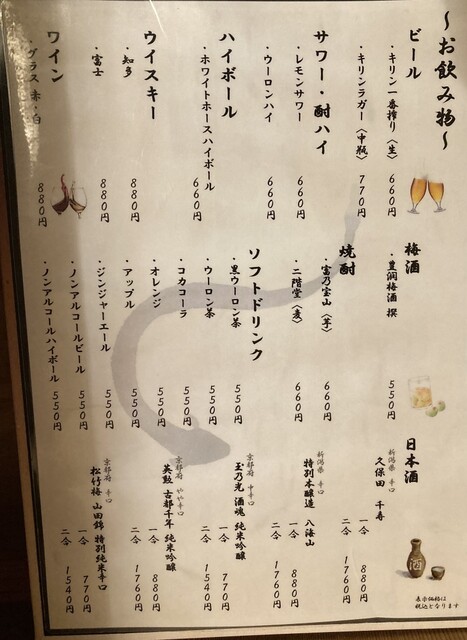 〜お飲み物〜
ビール
・キリン一番搾り〈生〉 660円
・キリンラガー〈中瓶〉 770円
サワー・酎ハイ
・レモンサワー 660円
・ウーロンハイ 660円
ハイボール
・ホワイトホースハイボール 660円
ウイスキー
・知多 880円
・富士 880円
ワイン
・グラス 赤・白 880円
梅酒
・豊潤梅酒 撰 550円
焼酎
・富乃宝山〈芋〉 660円
・二階堂〈麦〉 660円
ソフトドリンク
・黒ウーロン茶 550円
・ウーロン茶 550円
・コカコーラ 550円
・オレンジ 550円
・アップル 550円
・ジンジャーエール 550円
・ノンアルコールビール 550円
・ノンアルコールハイボール 550円
日本酒
新潟県 辛口
久保田 千寿
一合 880円
二合 1760円
新潟県 辛口
特別本醸造 八海山
一合 880円
二合 1760円
京都府 中辛口
玉乃光 酒魂 純米吟醸
一合 770円
二合 1540円
京都府 やや辛口
英勲 古都千年 純米吟醸
一合 880円
二合 1760円
京都府 辛口
松竹梅 山田錦 特別純米辛口
一合 770円
二合 1540円
酒
表示価格は
税込となります